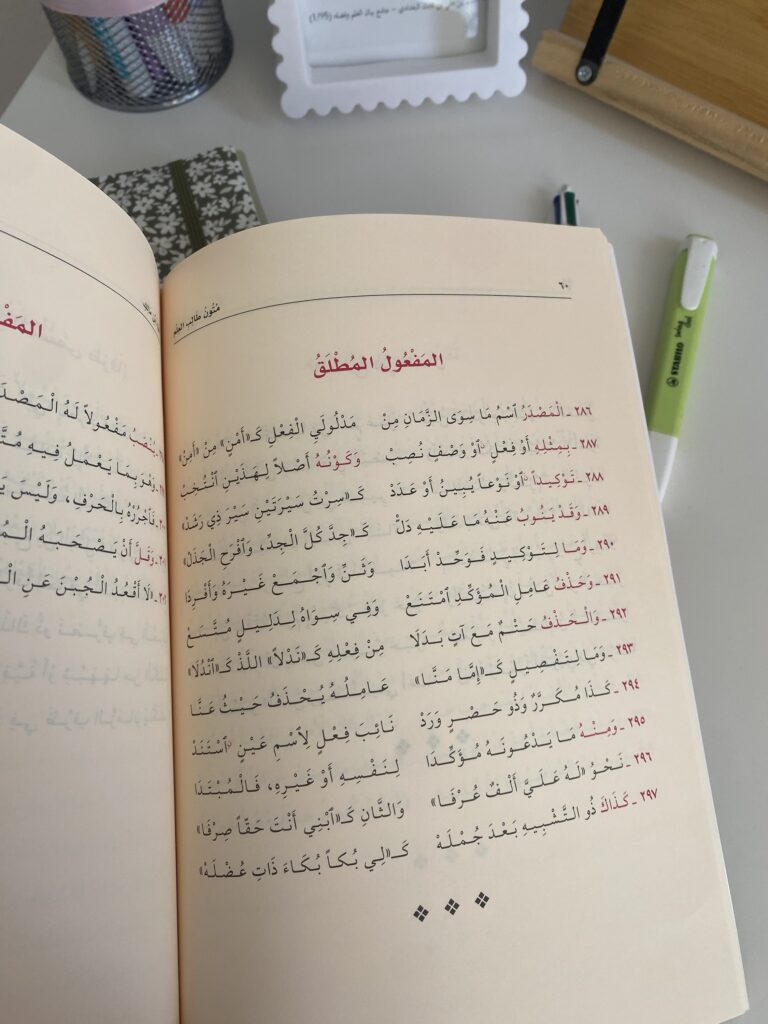 جامع بيان العلم وفضله (1/395)
STABILO
swing cool
٦٠
مُتُونُ طَالِبِ العِلْمِ
المَفْعُولُ المُطْلَقُ
٢٨٦ ـ الْمَصْدَرُ اسْمُ مَا سِوَى الزَّمَانِ مِنْ مَدْلُولَيِ الْفِعْلِ كَـ«أَمْنٍ» مِنْ «أَمِنْ»
٢٨٧ ـ بِمِثْلِهِ أَوْ فِعْلٍ اوْ وَصْفٍ نُصِبْ وَكَوْنُهُ أَصْلاً لِهَذَيْنِ انْتُخِبْ
٢٨٨ ـ تَوْكِيداً اوْ نَوْعاً يُبِينُ أَوْ عَدَدْ كَـ«سِرْتُ سَيْرَتَيْنِ سَيْرَ ذِي رَشَدْ»
٢٨٩ ـ وَقَدْ يَنُوبُ عَنْهُ مَا عَلَيْهِ دَلْ كَـ«جِدَّ كُلَّ الْجِدِّ، وَافْرَحِ الْجَذَلْ»
٢٩٠ ـ وَمَا لِتَوْكِيدٍ فَوَحِّدْ أَبَدَا وَثَنِّ وَاجْمَعْ غَيْرَهُ وَأَفْرِدَا
٢٩١ ـ وَحَذْفُ عَامِلِ الْمُؤَكِّدِ امْتَنَعْ وَفِي سِوَاهُ لِدَلِيلٍ مُتَّسَعْ
٢٩٢ ـ وَالْحَذْفُ حَتْمٌ مَعَ آتٍ بَدَلَا مِنْ فِعْلِهِ كَـ«نَدْلاً» اللَّذْ كَـ«انْدُلَا»
٢٩٣ ـ وَمَا لِتَفْصِيلٍ كَـ«إِمَّا مَنَّا» عَامِلُهُ يُحْذَفُ حَيْثُ عَنَّا
٢٩٤ ـ كَذَا مُكَرَّرٌ وَذُو حَصْرٍ وَرَدْ نَائِبَ فِعْلٍ لِاسْمِ عَيْنٍ اسْتَنَدْ
٢٩٥ ـ وَمِنْهُ مَا يَدْعُونَهُ مُؤَكِّدَا لِنَفْسِهِ أَوْ غَيْرِهِ، فَالْمُبْتَدَا
٢٩٦ ـ نَحْوُ «لَهُ عَلَيَّ أَلْفٌ عُرْفَا» وَالثَّانِ كَـ«ابْنِي أَنْتَ حَقّاً صِرْفَا»
٢٩٧ ـ كَذَاكَ ذُو التَّشْبِيهِ بَعْدَ جُمْلَهْ كَـ«لِي بُكاً بُكَاءَ ذَاتِ عُضْلَهْ»
يُنْصَبُ مَفْعُولاً لَهُ الْمَصْدَ
وَهْوَ بِمَا يَعْمَلُ فِيهِ مُتَّ
فَاجْرُرْهُ بِالْحَرْفِ، وَلَيْسَ يَ
وَقَلَّ أَنْ يَصْحَبَهُ الْمُ
«لَا أَقْعُدُ الْجُبْنَ عَنِ الْ